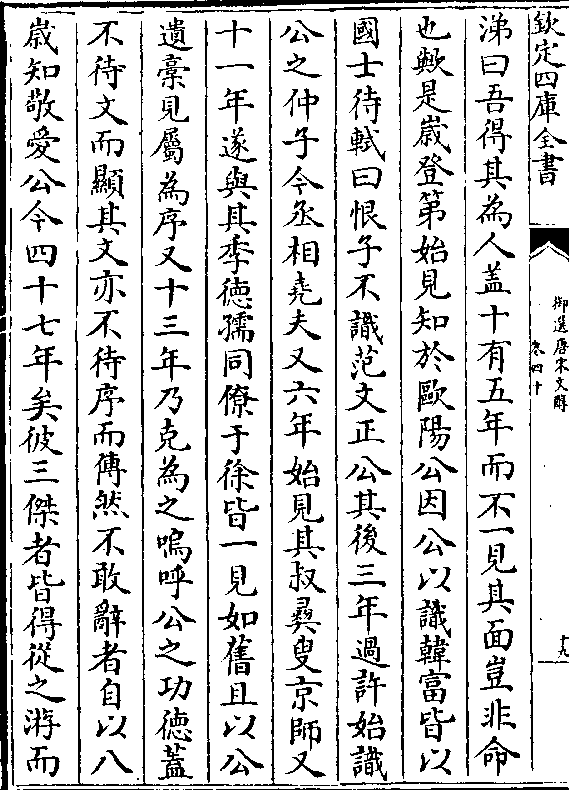 欽定四庫全書
御選唐宋文醇
卷四十
十九
涕曰吾得其為人蓋十有五年而不一見其面豈非命
也歟是嵗登第始見知於歐陽公因公以識韓富皆以
國士待軾曰恨子不識范文正公其後三年過許始識
公之仲子今丞相堯夫又六年始見其叔彛叟京師又
十一年遂與其季德孺同僚于徐皆一見如舊且以公
遺稾見屬為序又十三年乃克為之嗚呼公之功德蓋
不待文而顯其文亦不待序而傳然不敢辭者自以八
嵗知敬愛公今四十七年矣彼三傑者皆得從之游而